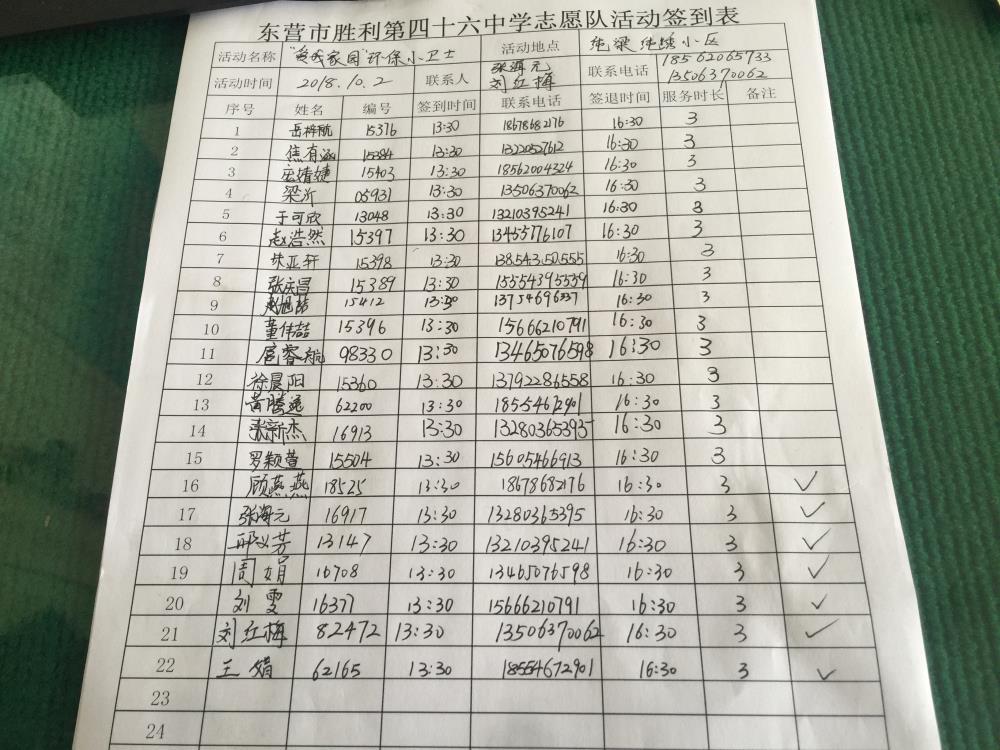 东营市胜利第四十六中学志愿队活动签到表
活动名称 "爱我家园"环保小卫士 活动地点 纯梁 小区
活动时间 2018.10.2 联系人 张海元 刘红梅 联系电话 18562065733 13506370062
序号 姓名 编号 签到时间 联系电话 签退时间 服务时长 备注
1 岳梓航 15376 13:30 18678682176 16:30 3
2 焦有涵 15384 13:30 13220527612 16:30 3
3 婧婕 15403 13:30 18562004324 16:30 3
4 梁沂 05931 13:30 13506370062 16:30 3
5 于可欣 13048 13:30 13210395241 16:30 3
6 赵浩然 15397 13:30 13455776107 16:30 3
7 亚轩 15398 13:30 13854350555 16:30 3
8 张庆昌 15389 13:30 15554395539 16:30 3
9 赵旭喆 15412 13:30 13754696337 16:30 3
10 董伟喆 15396 13:30 15666210791 16:30 3
11 扈睿航 98330 13:30 13465076598 16:30 3
12 徐晨阳 15360 13:30 13792286558 16:30 3
13 黄腾逸 62200 13:30 18554672901 16:30 3
14 张新杰 16913 13:30 13280365395 16:30 3
15 罗颖萱 15504 13:30 15605466913 16:30 3
16 顾燕燕 18525 13:30 18678682176 16:30 3 ✓
17 张海元 16917 13:30 13280365395 16:30 3 ✓
18 邴义芳 13147 13:30 13210395241 16:30 3 ✓
19 周娟 16708 13:30 13465076598 16:30 3 ✓
20 刘雯 16377 13:30 15666210791 16:30 3 ✓
21 刘红梅 82472 13:30 13506370062 16:30 3 ✓
22 王娟 62165 13:30 18554672901 16:30 3 ✓
23
24